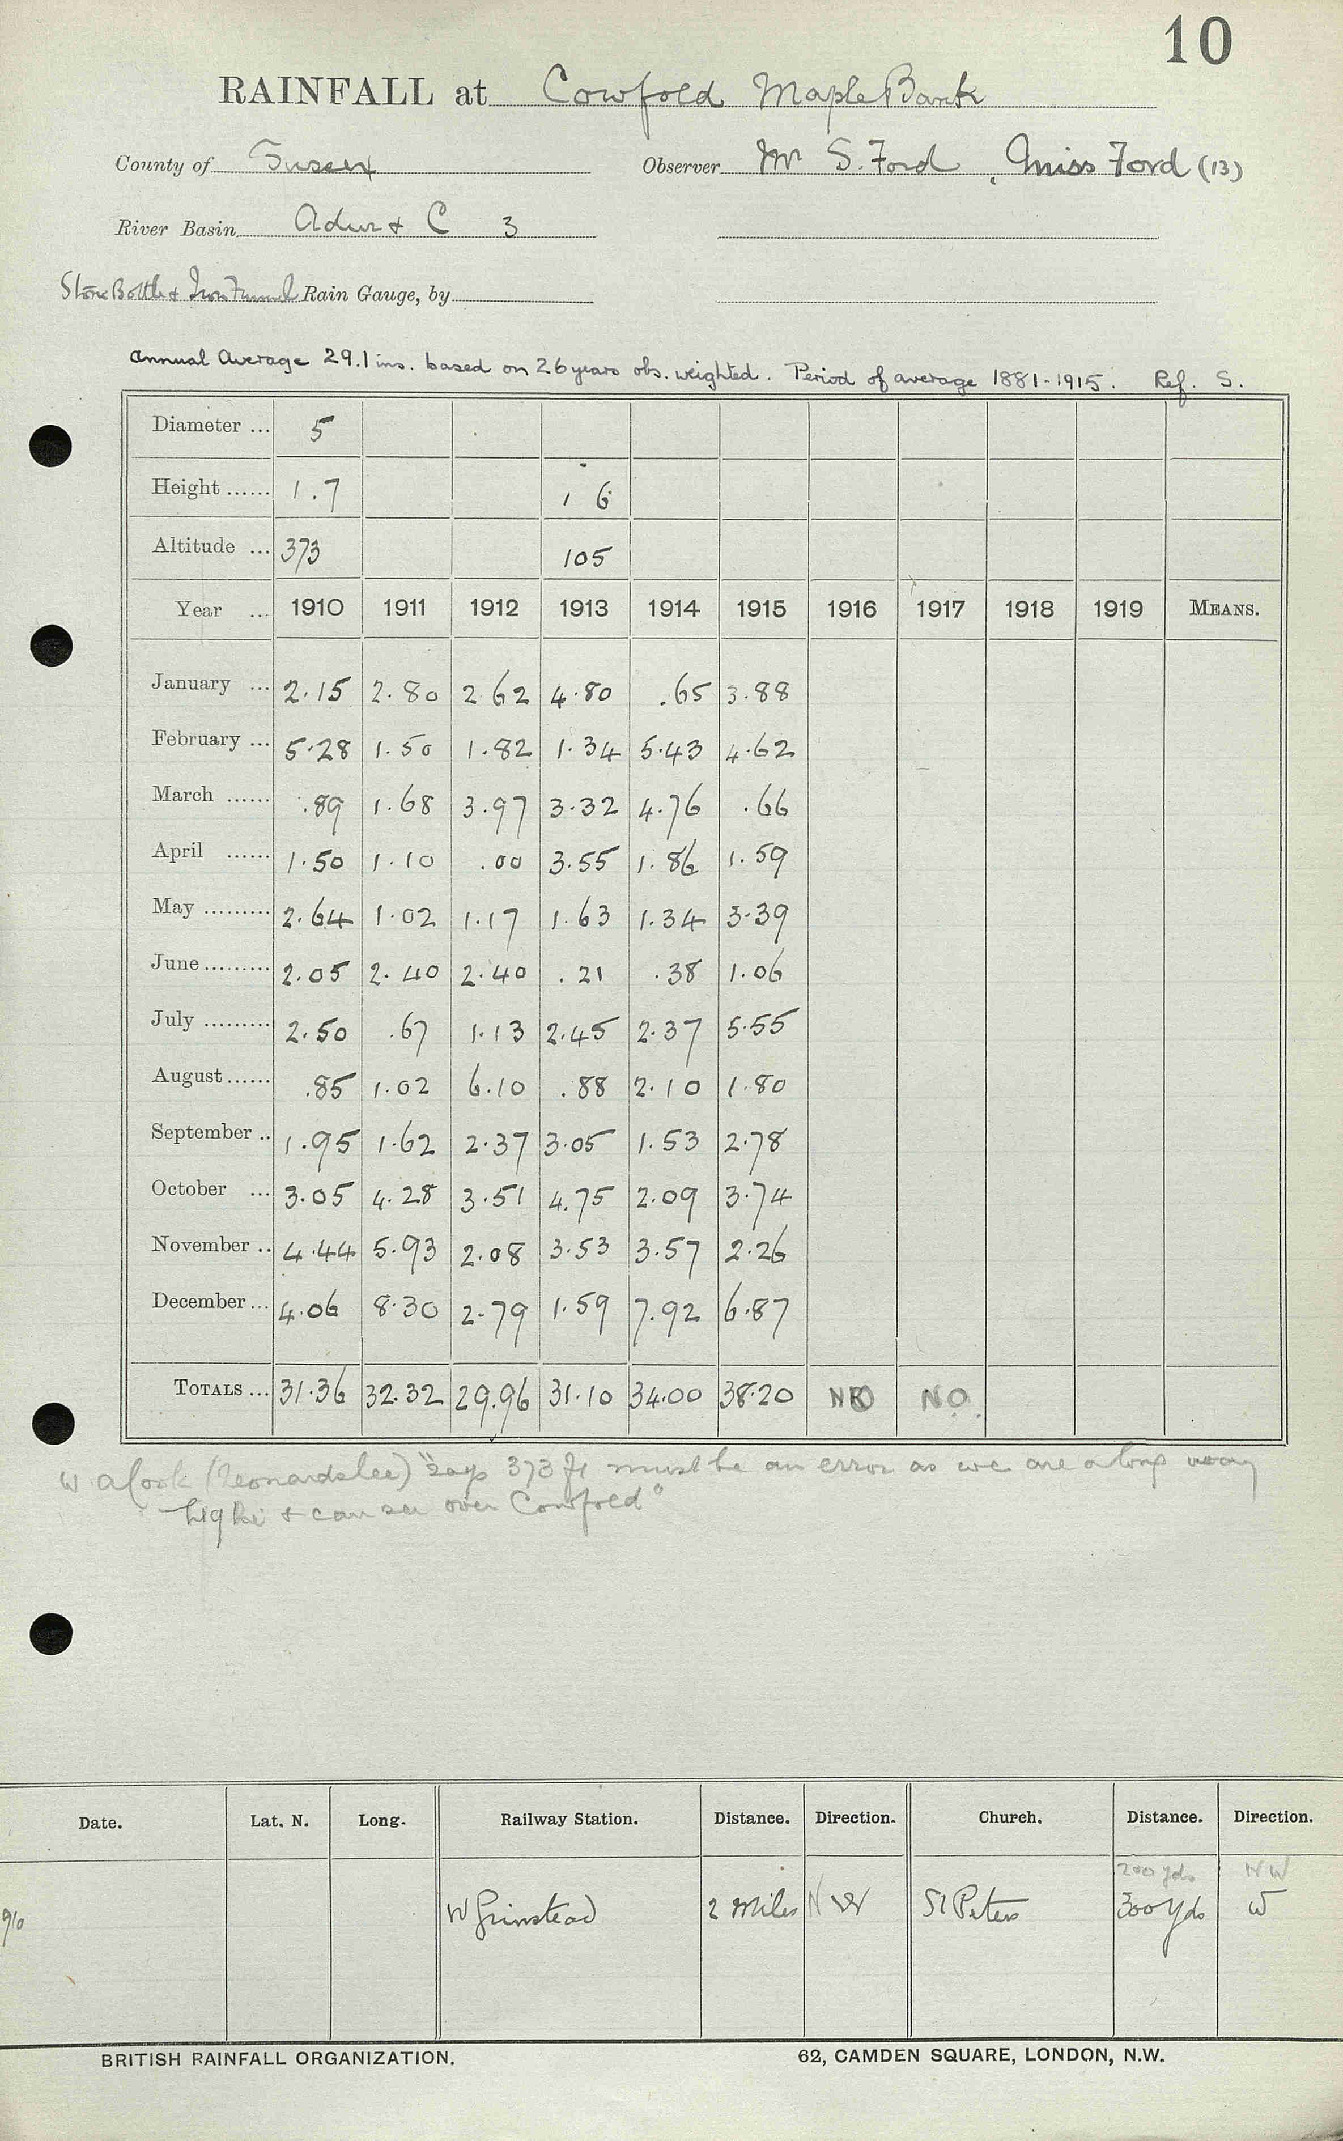 10
RAINFALL at Cowfold Maple Bank
County of Sussex Observer Mr S. Ford, Miss Ford (13)
River Basin Adur & C 3
Stone Bottle & Iron Funnel Rain Gauge, by
Annual Average 29.1 ins. based on 26 years obs. weighted. Period of average 1881-1915. Ref. S.
Diameter ... 5
Height ...... 1.7 1 6
Altitude ... 373 105
Year ... 1910 1911 1912 1913 1914 1915 1916 1917 1918 1919 MEANS.
January ... 2.15 2.80 2.62 4.80 .65 3.88
February ... 5.28 1.50 1.82 1.34 5.43 4.62
March ...... .89 1.68 3.97 3.32 4.76 .66
April ...... 1.50 1.10 .00 3.55 1.86 1.59
May ......... 2.64 1.02 1.17 1.63 1.34 3.39
June ......... 2.05 2.40 2.40 .21 .38 1.06
July ......... 2.50 .67 1.13 2.45 2.37 5.55
August ...... .85 1.02 6.10 .88 2.10 1.80
September .. 1.95 1.62 2.37 3.05 1.53 2.78
October ... 3.05 4.28 3.51 4.75 2.09 3.74
November .. 4.44 5.93 2.08 3.53 3.57 2.26
December ... 4.06 8.30 2.79 1.59 7.92 6.87
TOTALS ... 31.36 32.32 29.96 31.10 34.00 38.20 NO NO.
W A Cook (Leonardslee) "says 373 ft must be an error as we are a long way
higher & can see over Cowfold"
Date. Lat. N. Long. Railway Station. Distance. Direction. Church. Distance. Direction.
200 yds NW
910 W Grinstead 2 Miles NW St Peters 300 yds W
BRITISH RAINFALL ORGANIZATION. 62, CAMDEN SQUARE, LONDON, N.W.